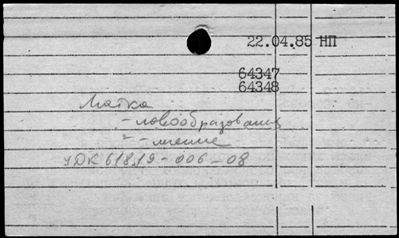 22.04.85 НП
64347
64348
Матка
-новообразования
"-лечение
УДК 618.19-006-08